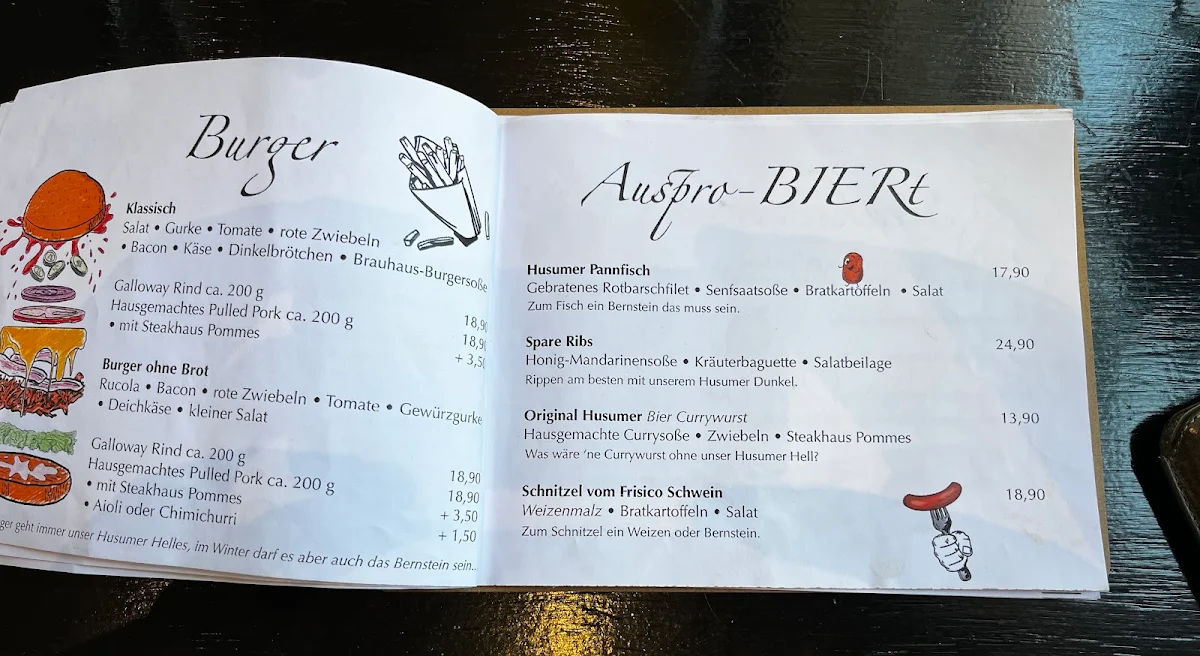 Burger
Klassisch
Salat • Gurke • Tomate • rote Zwiebeln
• Bacon • Käse • Dinkelbrötchen • Brauhaus-Burgersoße
Galloway Rind ca. 200 g 18,90
Hausgemachtes Pulled Pork ca. 200 g 18,90
• mit Steakhaus Pommes + 3,50
Burger ohne Brot
Rucola • Bacon • rote Zwiebeln • Tomate • Gewürzgurke
• Deichkäse • kleiner Salat
Galloway Rind ca. 200 g 18,90
Hausgemachtes Pulled Pork ca. 200 g 18,90
• mit Steakhaus Pommes + 3,50
• Aioli oder Chimichurri + 1,50
geht immer unser Husumer Helles, im Winter darf es aber auch das Bernstein sein...
Auspro-BIERt
Husumer Pannfisch 17,90
Gebratenes Rotbarschfilet • Senfsaatsoße • Bratkartoffeln • Salat
Zum Fisch ein Bernstein das muss sein.
Spare Ribs 24,90
Honig-Mandarinensoße • Kräuterbaguette • Salatbeilage
Rippen am besten mit unserem Husumer Dunkel.
Original Husumer Bier Currywurst 13,90
Hausgemachte Currysoße • Zwiebeln • Steakhaus Pommes
Was wäre ‘ne Currywurst ohne unser Husumer Hell?
Schnitzel vom Frisico Schwein 18,90
Weizenmalz • Bratkartoffeln • Salat
Zum Schnitzel ein Weizen oder Bernstein.